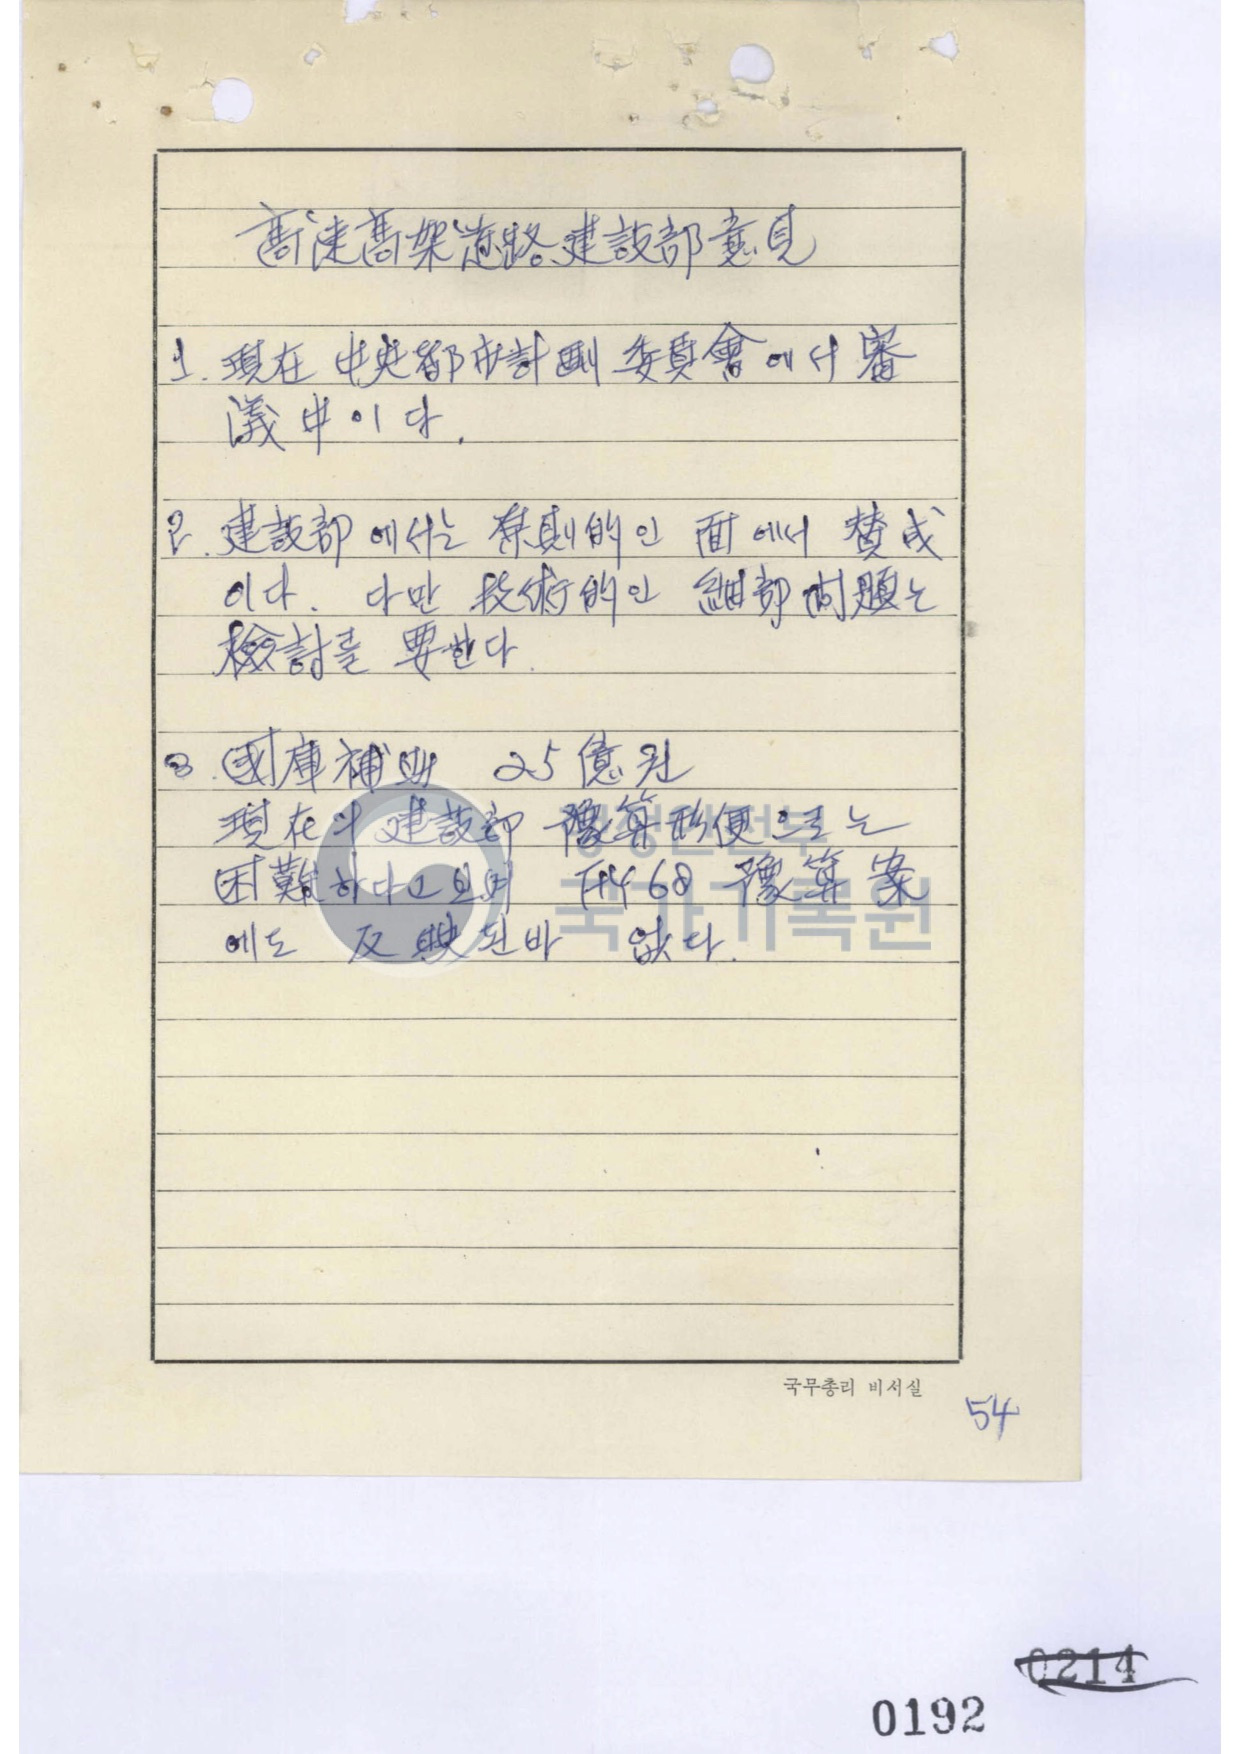 高速高架道路 建設部 意見
1. 現在 中央都市計劃 委員會에서 審
議中이다.
2. 建設部에서는 原則的인 面에서 贊成
이다. 다만 技術的인 細部問題는
檢討를 要한다.
3. 国庫補助 25億원
現在의 建設部 豫算形便으로는
困難하다고 보며 FY68 豫算案
에도 反映된바 없다.
행정안전부
국가기록원
국무총리 비서실
54
0214
0192